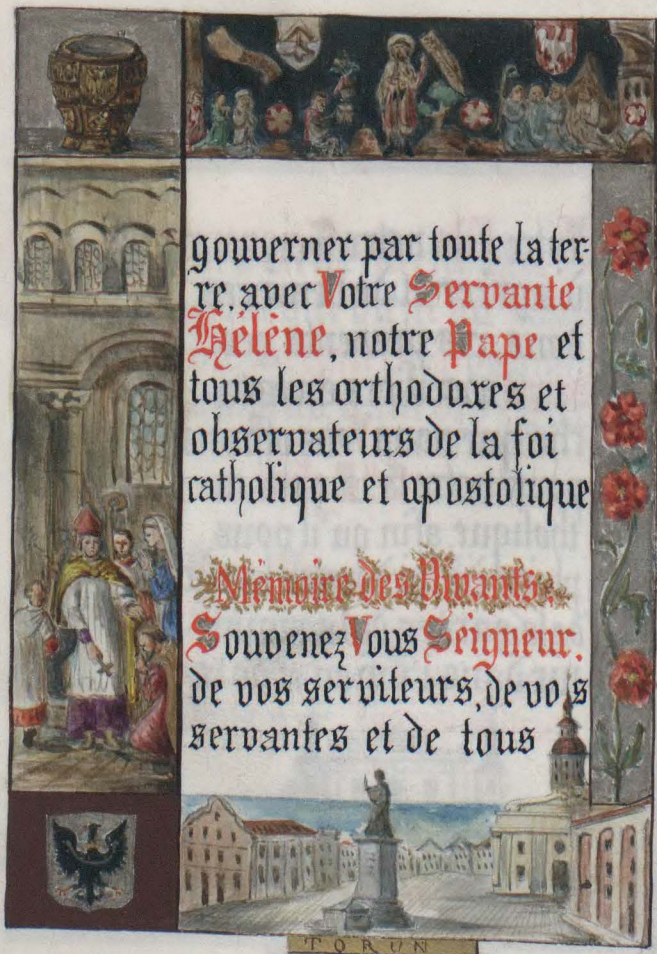 gouverner par toute la ter-
re, avec Votre Servante
Hélène, notre Pape et
tous les orthodoxes et
observateurs de la foi
catholique et apostolique
Mémoire des Vivants.
Souvenez Vous Seigneur,
de vos serviteurs, de vos
servantes et de tous
TORUN